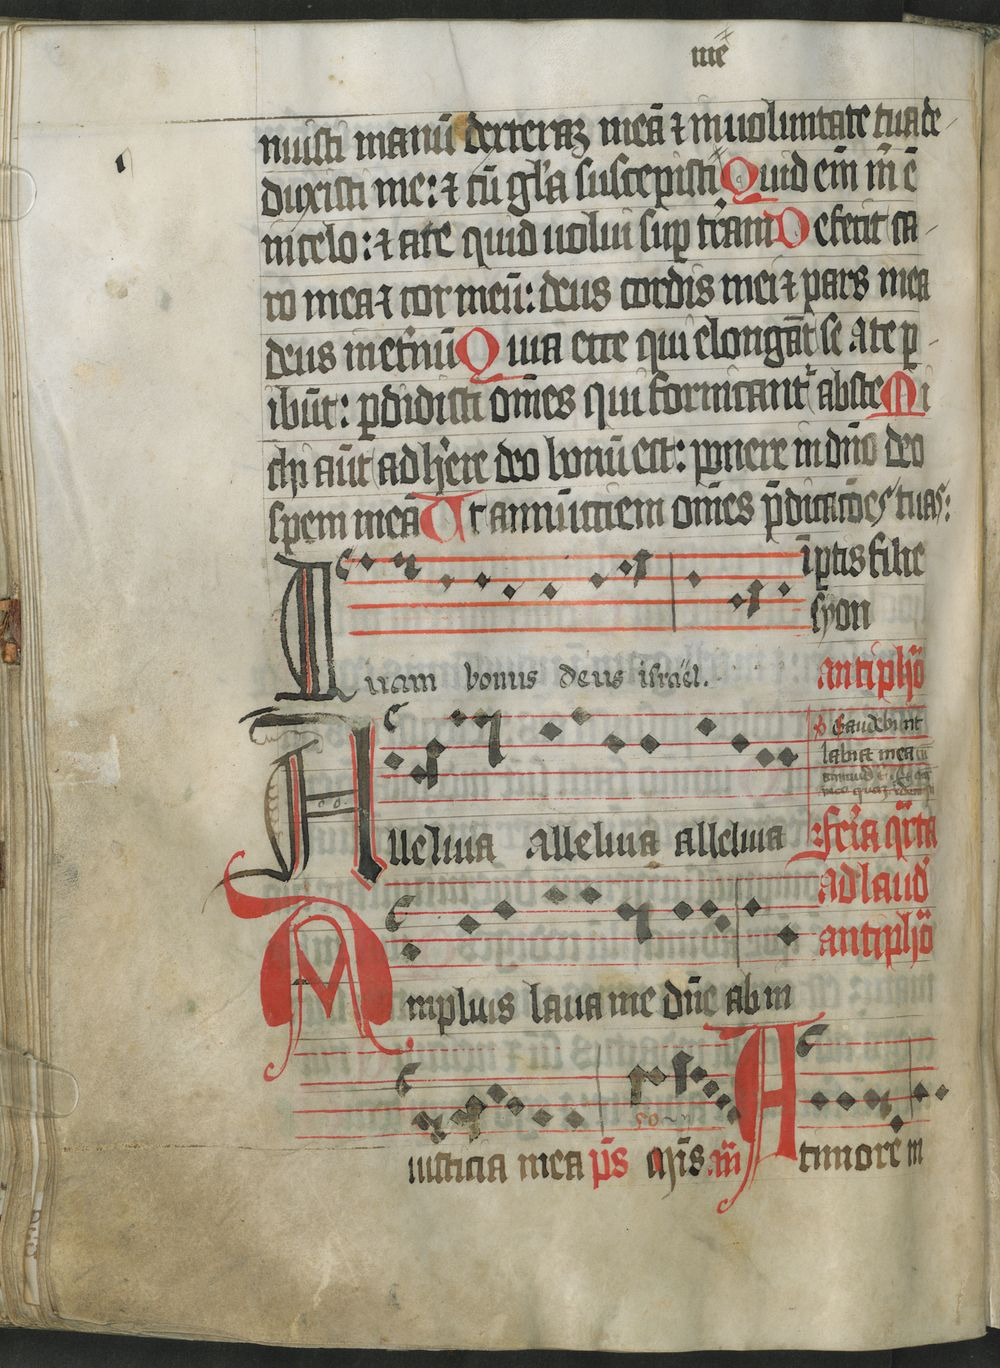 mē
nuisti manū dexteraꝫ meā ⁊ in uoluntate tua de-
duxisti me: ⁊ cū gl'a suscepisti Quid em̄ m̄ ē
in celo: ⁊ a te quid uolui sup̱ trāni Defecit ca-
ro mea ⁊ cor meū: deus cordis mei ⁊ pars mea
deus in et'nū Quia ecce qui elongāt se a te p̱-
ibūt: p̱didisti om̄es qui fornicant' abs te Mi
chi aūt adh'ere deo bonū est: ponere in dn̄o deo
spem meā Ut annūctiem om̄es p̄dicatōes tuas:
ī portis filie
syon
Quam bonus deus israel.
antiphō
Gaudebūnt
labia mea cū
Alleluia alleluia alleluia
feria q̄rta
ad laud'
antiphō
Amplius laua me dn̄e ab in
iusticia mea ps̄ m̄is. an̄ A timore in